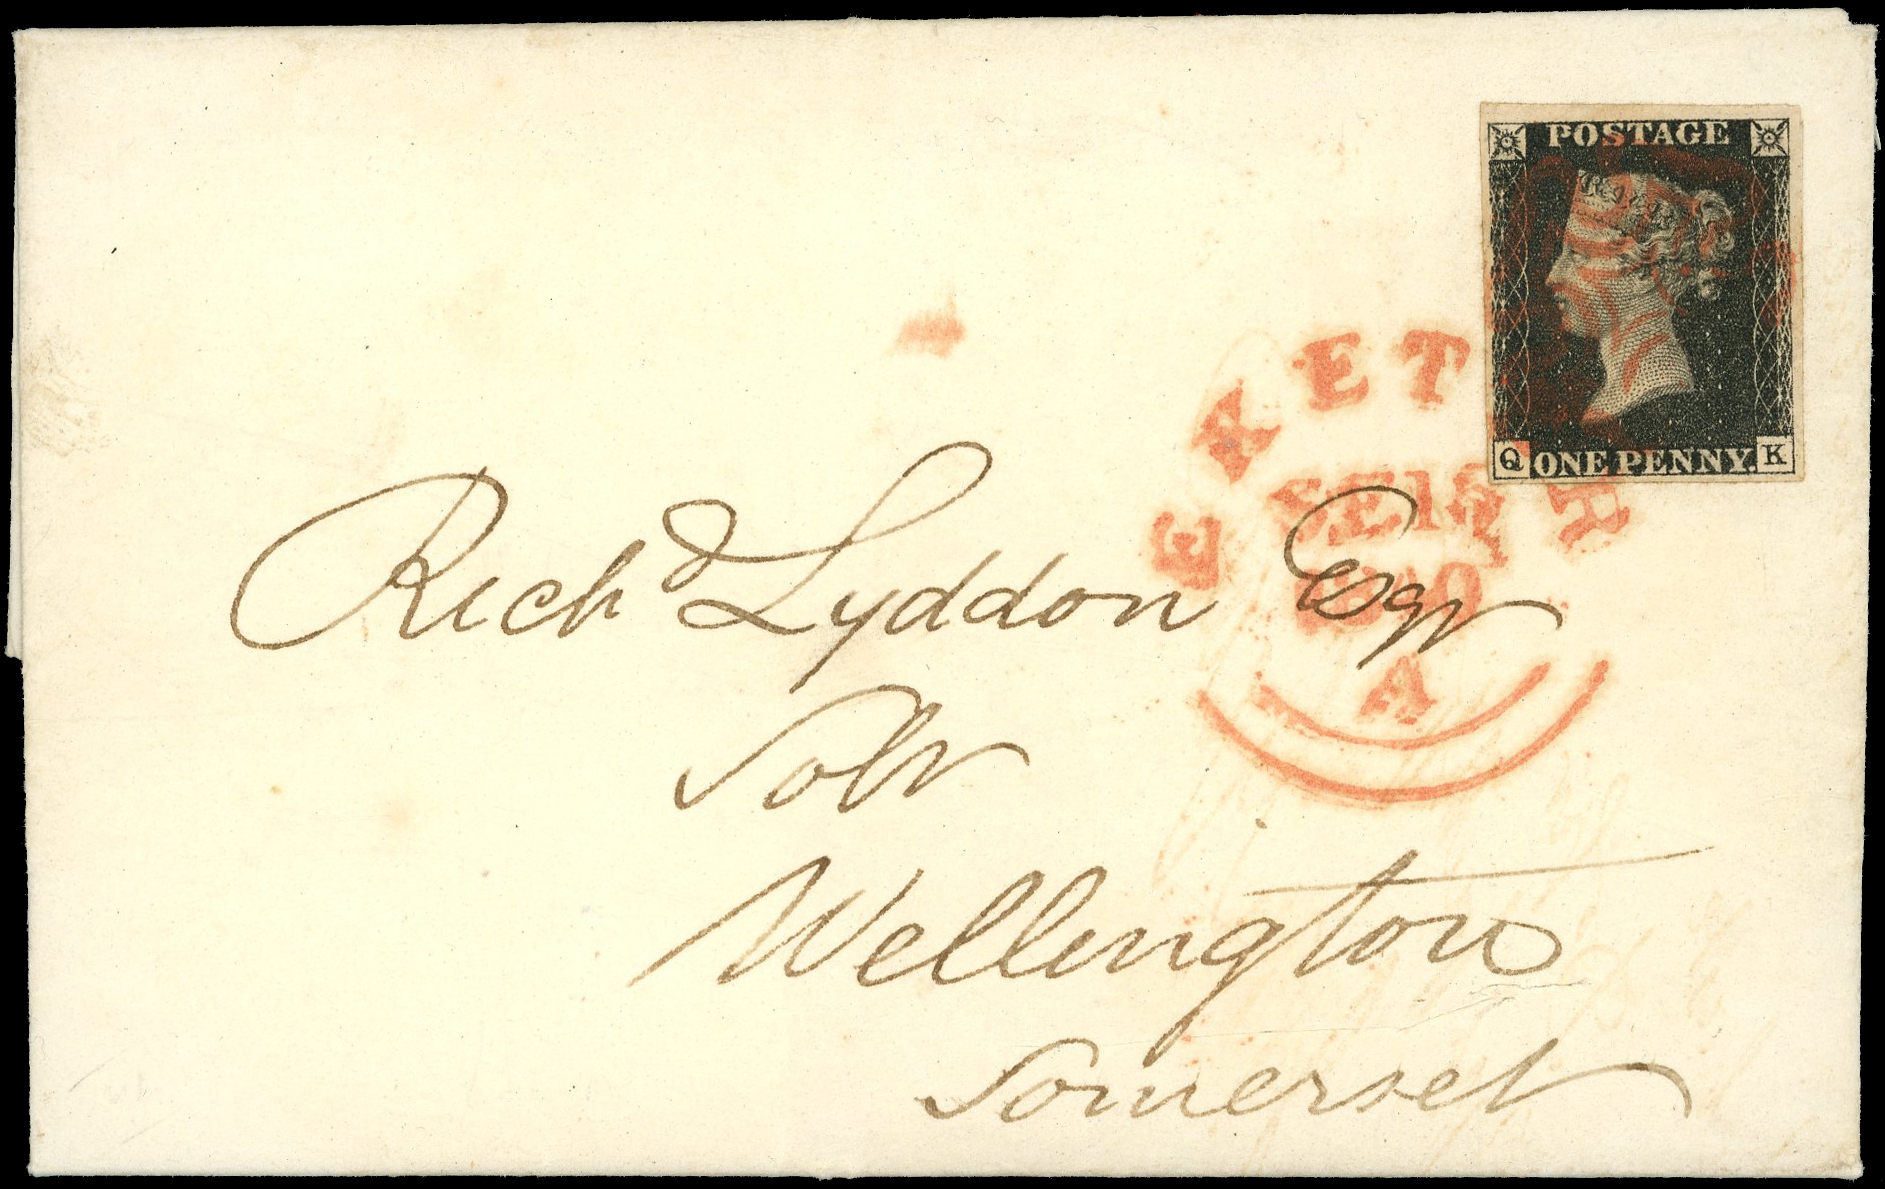 POSTAGE
Q ONE PENNY. K
EXETER
1840
A
Richd Lyddon Esqr
Solr
Wellington
Somerset